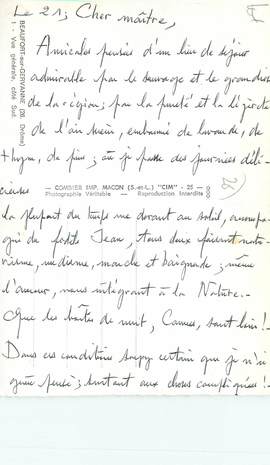 Le 21; Cher maître,
Amicales pensées d'un lieu de séjour
admirable par le sauvage et le grandiose
de la région; par la pureté et la légèreté
de l'air sain, embaumé de lavande, de
thym, de pin; où je passe des journées déli-
cieuses
la plupart du temps me dorant au soleil, accompa-
gné de Jean, tous deux faisant natu-
risme, nudisme, marche et baignade; même
l'amour, nous intégrant à la Nature.
Que les boîtes de nuit, Cannes, sont loin!
Dans ces conditions soyez certain que je n'ai
guère pensé; surtout aux choses compliquées!
BEAUFORT-sur-GERVANNE (26. Drôme)
1 - Vue générale, côté Sud.
COMBIER IMP. MACON (S.-et-L.) "CIM" - 25 -
Photographie Véritable - Reproduction Interdite
26